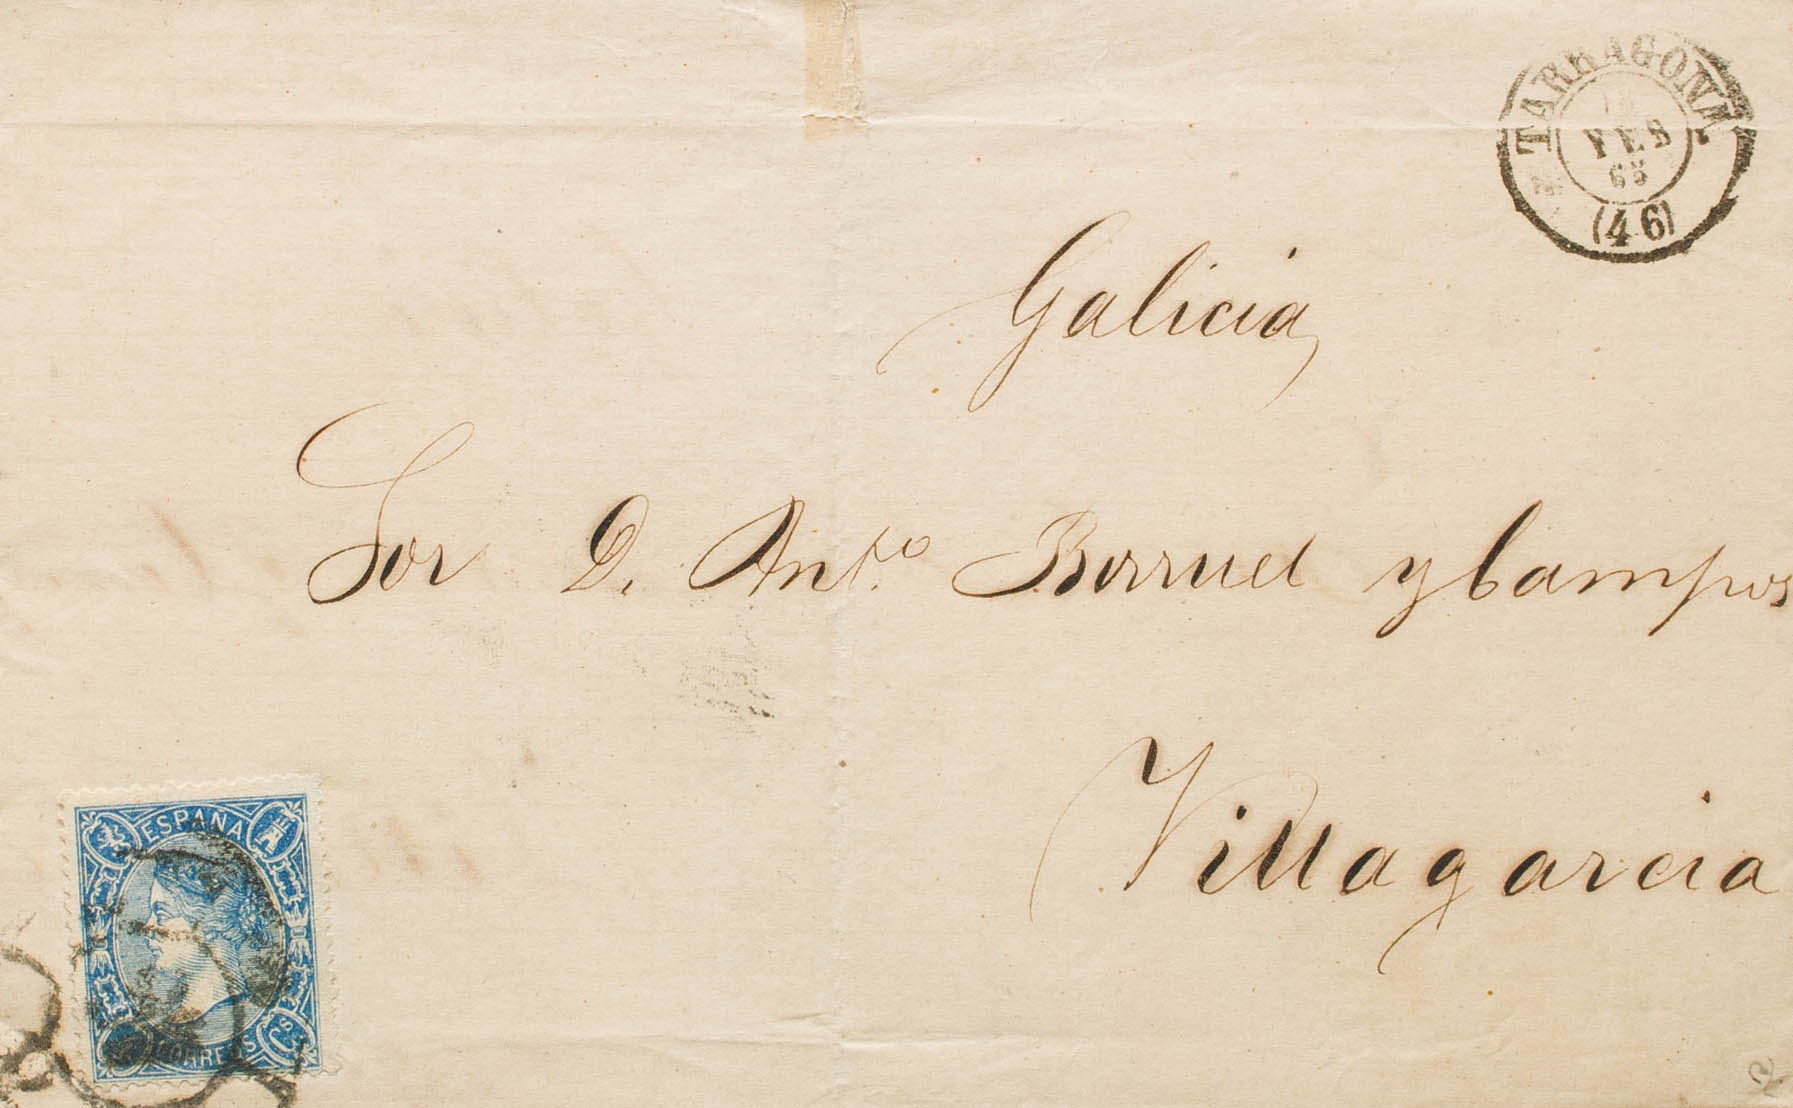 TARRAGONA
FEB
65
(46)
Galicia
Sor D. Ant.º Borruel y Campos
Villagarcia
ESPAÑA
CORREOS
CS